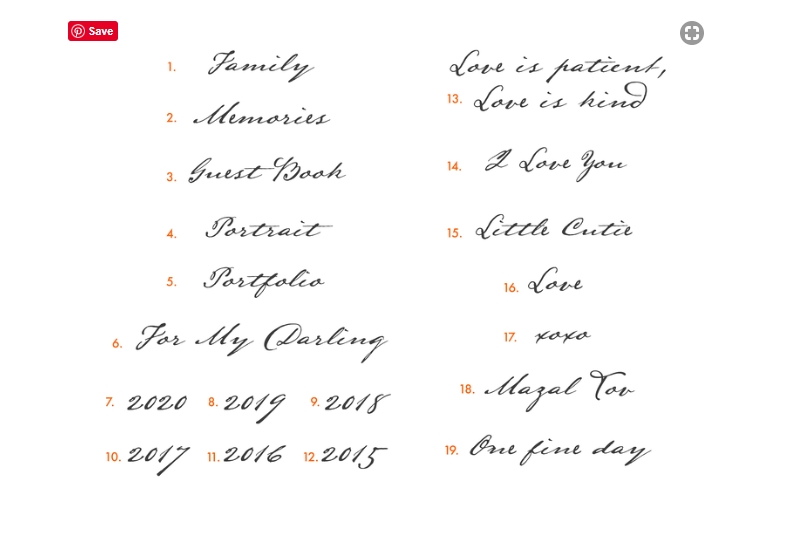 Save
1. Family
2. Memories
3. Guest Book
4. Portrait
5. Portfolio
6. For My Darling
7. 2020 8. 2019 9. 2018
10. 2017 11. 2016 12. 2015
Love is patient,
13. Love is kind
14. I Love You
15. Little Cutie
16. Love
17. xoxo
18. Mazal Tov
19. One fine day